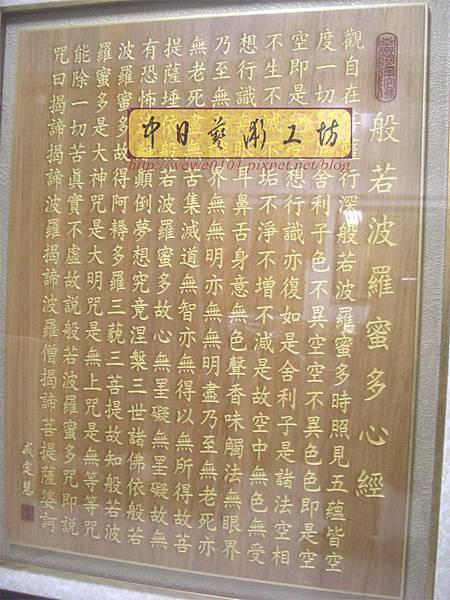 般若波羅蜜多心經
觀自在行深般若波羅蜜多時照見五蘊皆空
度一切舍利子色不異空空不異色色即是空
空即是想行識亦復如是舍利子是諸法空相
不生不滅不垢不淨不增不減是故空中無色無受
想行識無耳鼻舌身意無色聲香味觸法無眼界
乃至無界無無明亦無無明盡乃至無老死亦
無老死苦集滅道無智亦無得以無所得故菩
提薩埵依般若波羅蜜多故心無罣礙無罣礙故無
有恐怖顛倒夢想究竟涅槃三世諸佛依般若
波羅蜜多故得阿耨多羅三藐三菩提故知般若波
羅蜜多是大神咒是大明咒是無上咒是無等等咒
能除一切苦真實不虛故說般若波羅蜜多咒即說
咒曰揭諦揭諦波羅揭諦波羅僧揭諦菩提薩婆訶
戒定慧
中日藝術工坊
http://wewe0101.pixnet.net/blog